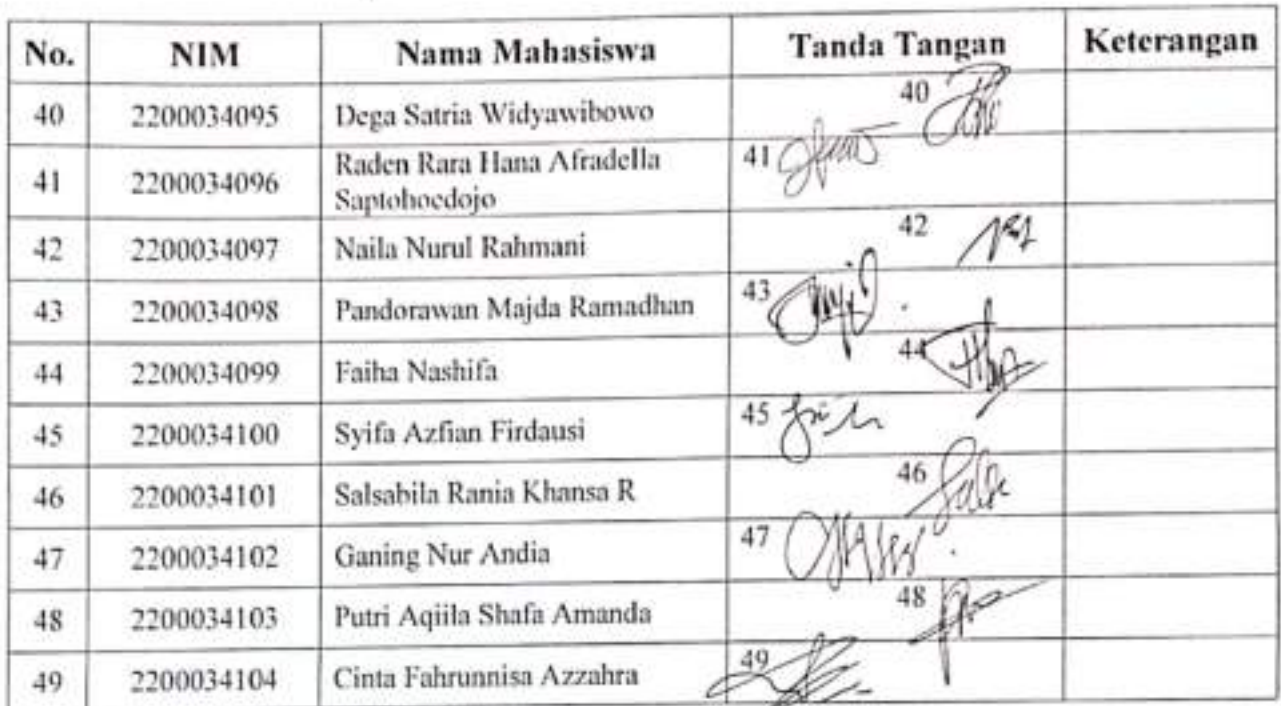 No. NIM Nama Mahasiswa Tanda Tangan Keterangan
40 2200034095 Dega Satria Widyawibowo 40
41 2200034096 Raden Rara Hana Afradella 41
Saptohoedojo
42 2200034097 Naila Nurul Rahmani 42
43 2200034098 Pandorawan Majda Ramadhan 43
44 2200034099 Faiha Nashifa 44
45 2200034100 Syifa Azfian Firdausi 45
46 2200034101 Salsabila Rania Khansa R 46
47 2200034102 Ganing Nur Andia 47
48 2200034103 Putri Aqiila Shafa Amanda 48
49 2200034104 Cinta Fahrunnisa Azzahra 49